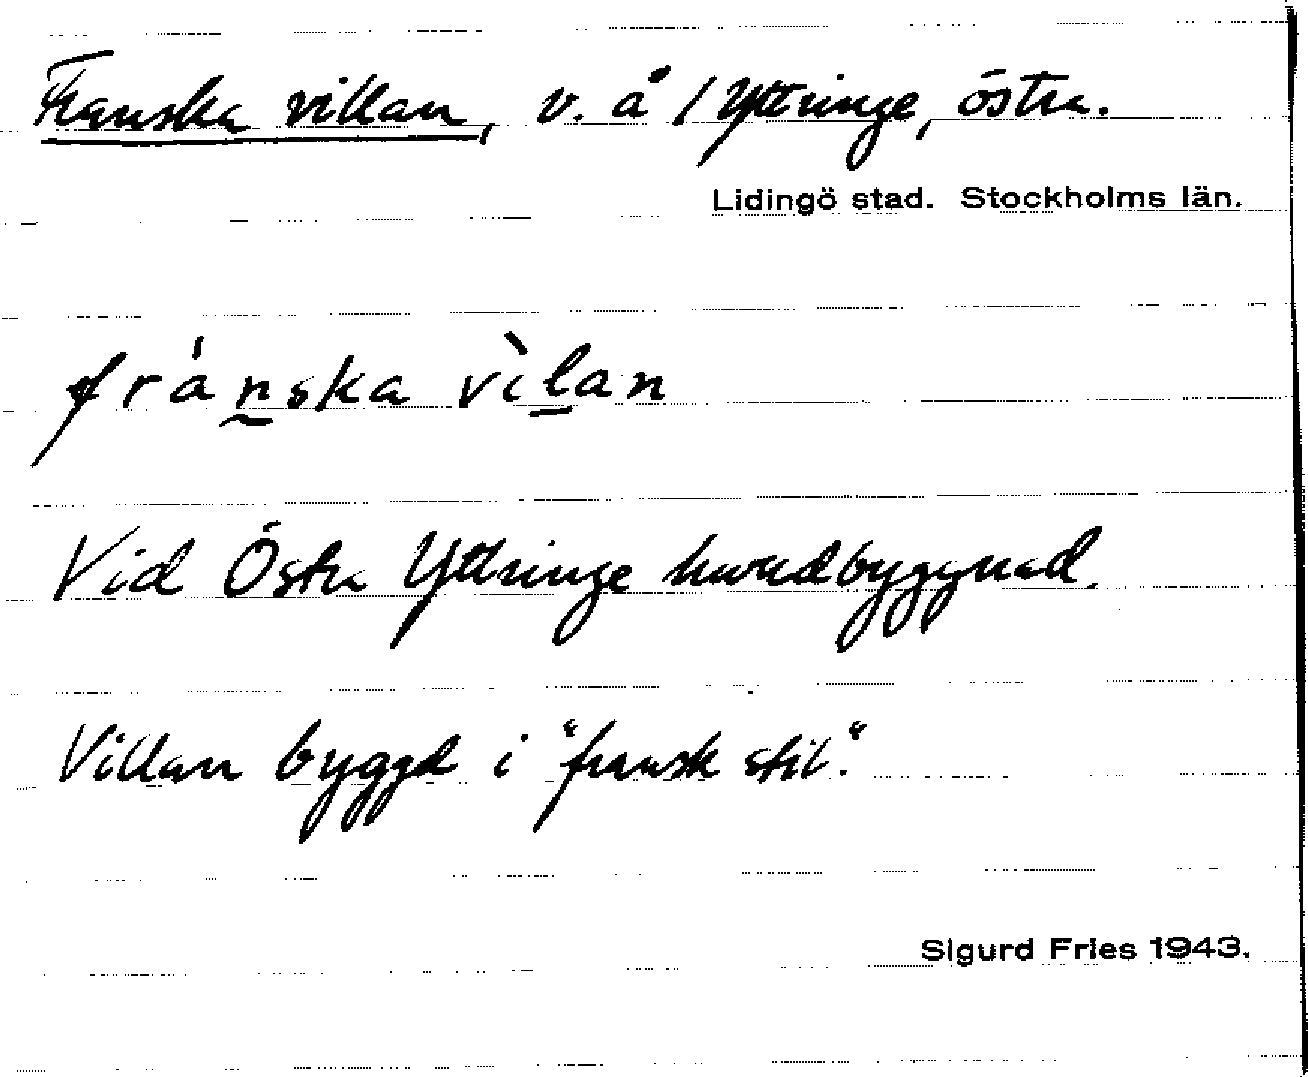 Franska villan, v. å / Yttringe, östra.
Lidingö stad. Stockholms län.
fránska vìlan
Vid Östra Yttringe huvudbyggnad.
Villan byggd i "fransk stil".
Sigurd Fries 1943.